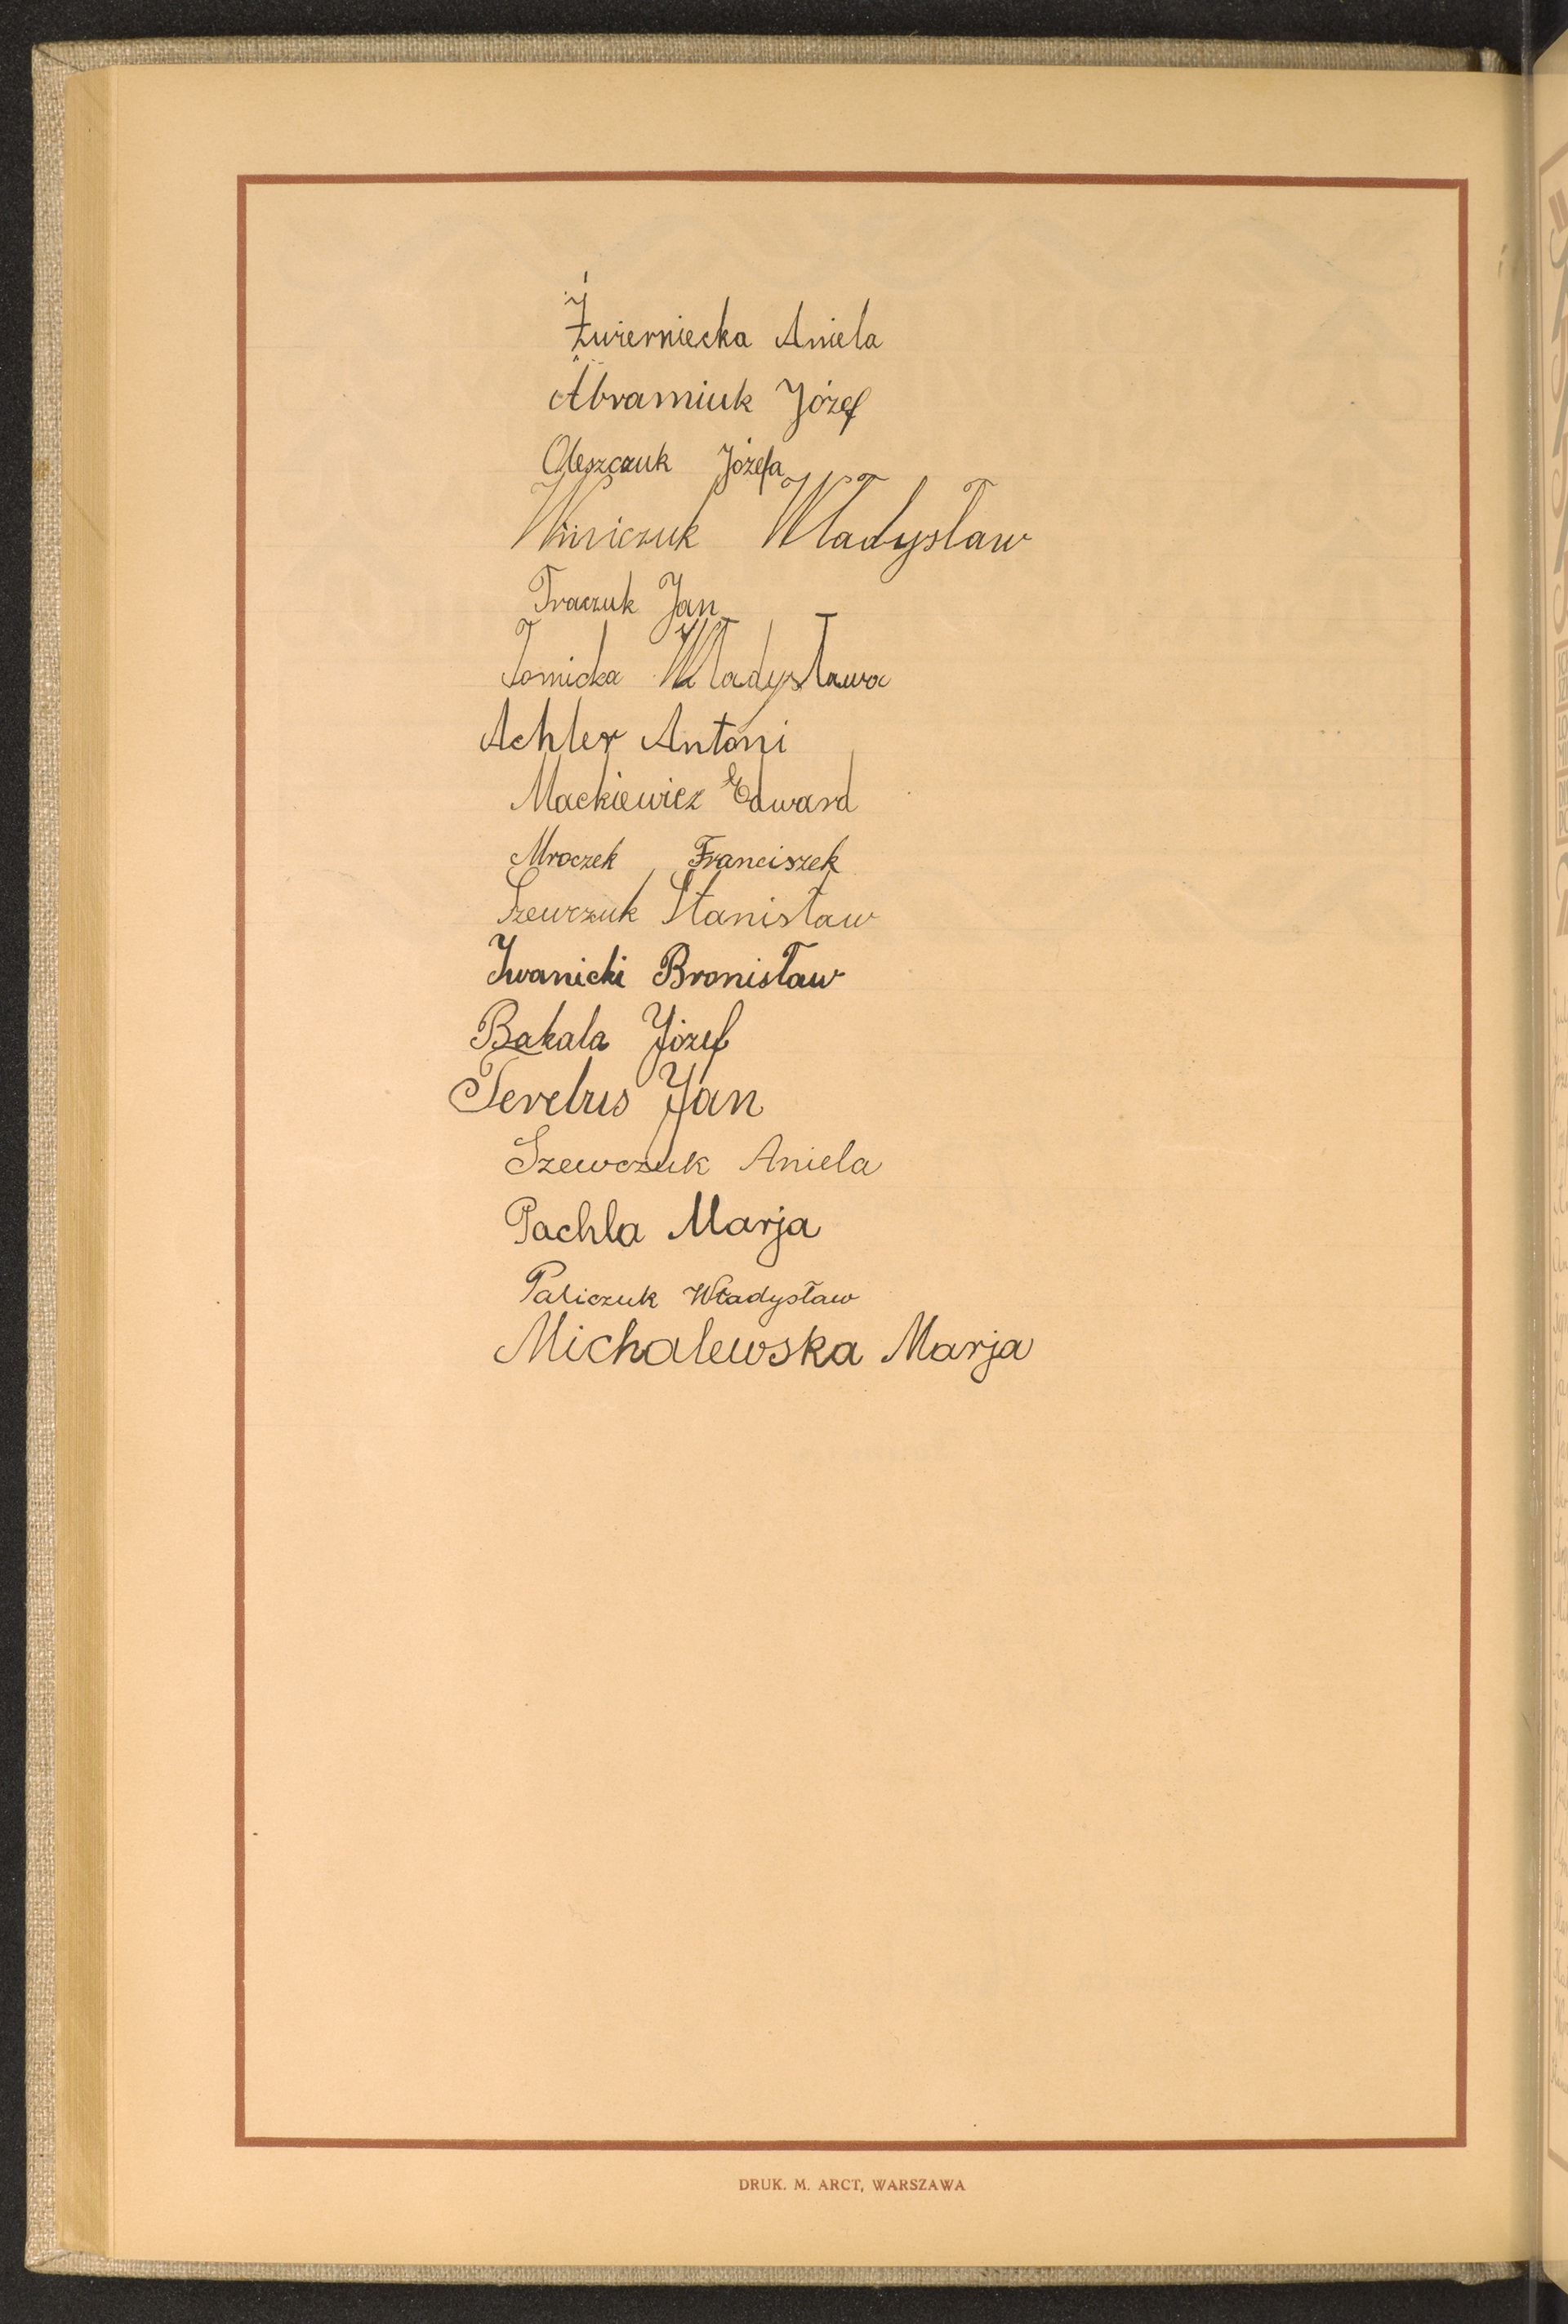 Żwierniecka Aniela
Abramiuk Józef
Oleszczuk Józefa
Winiczuk Władysław
Traczuk Jan
Tomicka Władysława
Achler Antoni
Mackiewicz Edward
Mroczek Franciszek
Szewczuk Stanisław
Iwanicki Bronisław
Bakala Józef
Terebus Jan
Szewczuk Aniela
Pachla Marja
Paliczuk Władysław
Michalewska Marja
DRUK. M. ARCT, WARSZAWA